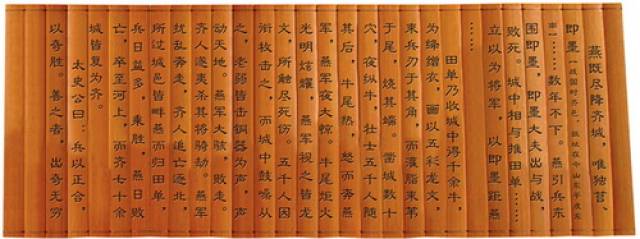 燕既尽降齐城，唯独莒、
即墨（战国时齐邑，故址在今山东平度东
南）……数年不下。燕引兵东
围即墨，即墨大夫出与战，
败死。城中相与推田单……
立以为将军，以即墨距燕
……
田单乃收城中得千余牛，
为绛缯衣，画以五彩龙文，
束兵刃于其角，而灌脂束苇
于尾，烧其端。凿城数十
穴，夜纵牛，壮士五千人随
其后，牛尾热，怒而奔燕
军，燕军夜大惊。牛尾炬火
光明炫耀，燕军视之皆龙
文，所触尽死伤。五千人因
衔枚击之，而城中鼓噪从
之，老弱皆击铜器为声，声
动天地。燕军大骇，败走。
齐人遂夷杀其将骑劫。燕军
扰乱奔走，齐人追亡逐北，
所过城邑皆畔燕而归田单，
兵日益多，乘胜，燕日败
亡，卒至河上，而齐七十余
城皆复为齐。
太史公曰：兵以正合，
以奇胜。善之者，出奇无穷